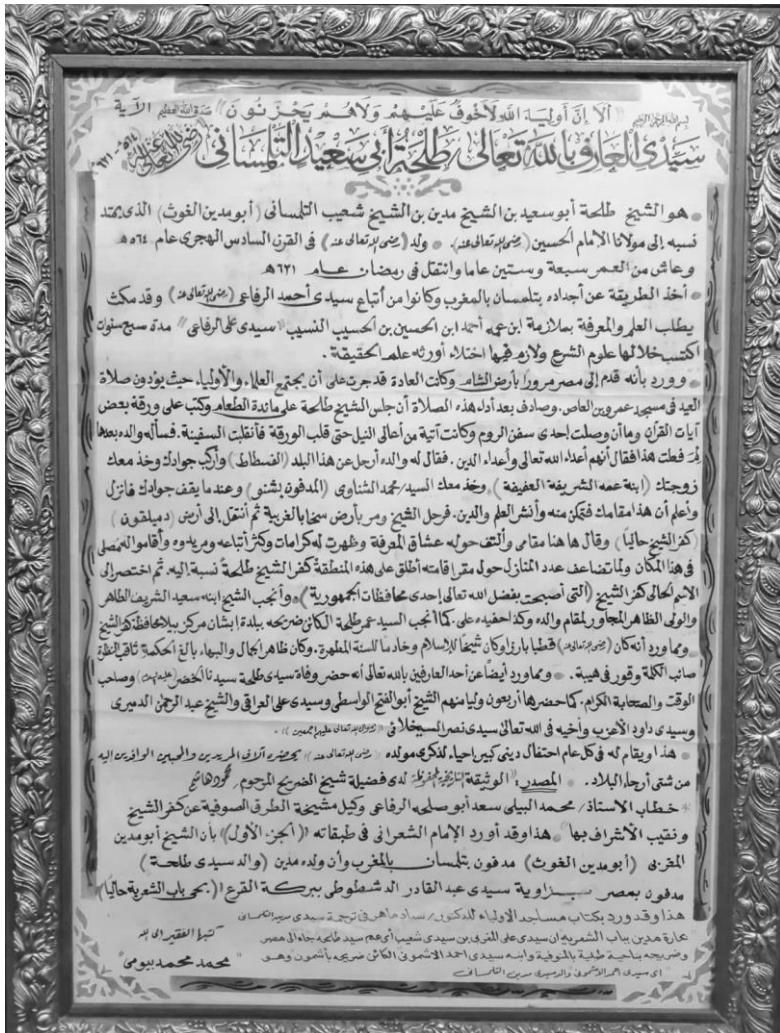 بسم الله الرحمن الرحيم "ألا إن أولياء الله لا خوف عليهم ولا هم يحزنون" صدق الله العظيم الآية
سيدى العارف بالله تعالى طلحة أبى سعيد التلمسانى رضى الله تعالى عنه (٥٦٤ - ٦٣١ هـ)
* هو الشيخ طلحة أبو سعيد بن الشيخ مدين بن الشيخ شعيب التلمسانى (أبو مدين الغوث) الذى يمتد
نسبه إلى مولانا الإمام الحسين (رضى الله تعالى عنه). * ولد (رضى الله تعالى عنه) فى القرن السادس الهجرى عام ٥٦٤ هـ
وعاش من العمر سبعة وستين عاما وانتقل فى رمضان عام ٦٣١ هـ
* أخذ الطريقة عن أجداده بتلمسان بالمغرب وكانوا من أتباع سيدى أحمد الرفاعى (رضى الله تعالى عنه) وقد مكث
يطلب العلم والمعرفة بملازمة ابن عمه أحمد ابن الحسين بن الحسيب النسيب "سيدى على الرفاعى" مدة سبع سنوات
اكتسب خلالها علوم الشرع ولازم فيها اختلاء أورثه علم الحقيقة.
* وورد بأنه قدم إلى مصر مرورا بأرض الشام وكانت العادة قد جرت على أن يجتمع العلماء والأولياء حيث يؤدون صلاة
العيد فى مسجد عمرو بن العاص. وصادف بعد أداء هذه الصلاة أن جلس الشيخ طلحة على مائدة الطعام وكتب على ورقة بعض
آيات القرآن وما أن وصلت إحدى سفن الروم وكانت آتية من أعالى النيل حتى قلب الورقة فأنقلبت السفينة. فسأله والده بعدها
لم فعلت هذا فقال أنهم أعداء الله تعالى وأعداء الدين. فقال له والده أرحل عن هذا البلد (الفسطاط) وأركب جوادك وخذ معك
زوجتك (ابنة عمه الشريفة العفيفة) وخذ معك السيد/ محمد الشناوى (المدفون بشنو) وعندما يقف جوادك فانزل
وأعلم أن هذا مقامك فتمكن منه وأنشر العلم والدين. فرحل الشيخ ومر بأرض سخا بالغربية ثم أنتقل إلى أرض (دميلقون)
(كفر الشيخ حاليا) وقال ها هنا مقامى وألتف حوله عشاق المعرفة وظهرت له كرامات وكثر أتباعه ومريدوه وأقاموا له مصلى
فى هذا المكان ولما تضاعف عدد المنازل حول مقر إقامته أطلق على هذه المنطقة كفر الشيخ طلحة نسبة إليه. ثم اختصر إلى
الاسم الحالى كفر الشيخ (التى أصبحت بفضل الله تعالى إحدى محافظات الجمهورية) * وأنجب الشيخ ابنه سعيد الشريف الطاهر
والولى الظاهر المجاور لمقام والده وكذا حفيده على. كما أنجب السيد عمر طلحة الكائن ضريحه ببلدة إبشان مركز بيلا محافظة كفر الشيخ
* ومما ورد أنه كان (رضى الله تعالى عنه) قطبا بارزا وكان شيخا للإسلام وخادما للسنة المطهرة. وكان ظاهر الجمال والبهاء بالغ الحكمة ثاقب النظرة
صائب الكلمة وقور فى هيبة. * ومما ورد أيضا عن أحد العارفين بالله تعالى أنه حضر وفاة سيدى طلحة سيدنا الخضر (عليه السلام) وصاحب
الوقت والصحابة الكرام. كما حضرها أربعون وليا منهم الشيخ أبو الفتح الواسطى وسيدى على العراقى والشيخ عبد الرحمن الدميرى
وسيدى داود الأعزب وأخيه فى الله تعالى سيدى نصر السيخلافى (رضوان الله تعالى عليهم أجمعين).
* هذا ويقام له فى كل عام احتفال دينى كبير إحياء لذكرى مولده (رضى الله تعالى عنه) يحضره آلاف المريدين والمحبين الوافدين إليه
من شتى أرجاء البلاد. * المصدر: الوثيقة التاريخية المحفوظة لدى فضيلة شيخ الضريح المرحوم/ محمود هاشم
* خطاب الاستاذ/ محمد البيلى سعد أبو صلحه الرفاعى وكيل مشيخة الطرق الصوفية عن كفر الشيخ
ونقيب الأشراف بها * هذا وقد أورد الإمام الشعرانى فى طبقاته ((الجزء الأول)) بأن الشيخ أبو مدين
المغربى (أبو مدين الغوث) مدفون بتلمسان بالمغرب وأن ولده مدين (والد سيدى طلحة)
مدفون بمصر بزاوية سيدى عبد القادر الدشطوطى ببركة القرع ((بحى باب الشعرية حاليا))
هذا وقد ورد بكتاب مساجد الاولياء للدكتور/ سعاد ماهر فى ترجمة سيدى مدين التلمسانى
بحارة مدين بباب الشعريه ان سيدى على المغربى بن سيدى شعيب أى عم سيد طلحه جاء الى مصر
وضريحه بناحية طبلية بالمنوفية وابنه سيدى احمد الاشمونى الكائن ضريحه بأشمون وهو
أى سيدى احمد الاشمونى والد سيدى مدين التلمسانى
كتبها الفقير إلى الله
"محمد محمد بيومى"